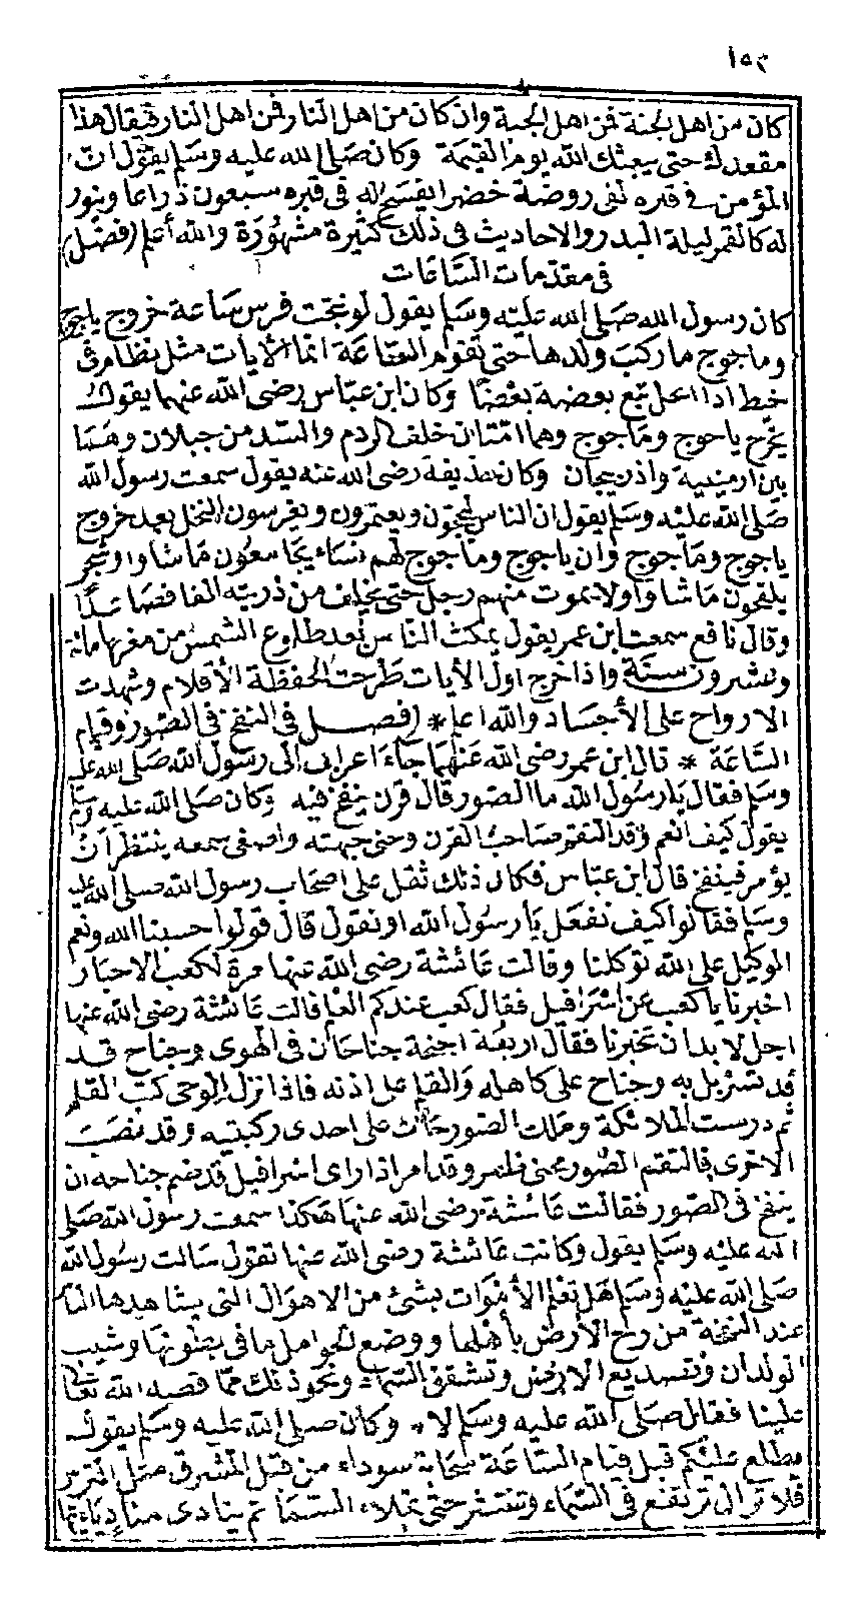 ١٥٣
كان من اهل الجنة فمن اهل الجنة وان كان من اهل النار فمن اهل النار فيقال هذا
مقعدك حتى يبعثك الله يوم القيمة وكان صلى الله عليه وسلم يقول ان
المؤمن في قبره لفى روضة خضرا يفسح له فى قبره سبعون ذراعا وينور
له كالقمر ليلة البدر والاحاديث فى ذلك كثيرة مشهورة والله أعلم (فصل)
فى مقدمات الساعات
كان رسول الله صلى الله عليه وسلم يقول لو نتجت فرس ساعة خروج ياجوج
وماجوج ما ركب ولدها حتى تقوم الساعة انما الآيات مثل نظام فى
خيط اذا انحل تبع بعضه بعضا وكان ابن عباس رضى الله عنهما يقول
يخرج ياجوج وماجوج وهما امتان خلف الردم والسد من جبلان وهما
بين ارمينية واذربيجان وكان حذيفة رضى الله عنه يقول سمعت رسول الله
صلى الله عليه وسلم يقول ان الناس ليحجون ويعتمرون ويغرسون النخل بعد خروج
ياجوج وماجوج وان ياجوج وماجوج لهم نساء يجامعون ما شاوا وشجر
يلقحون ما شاوا ولا يموت منهم رجل حتى يخلف من ذريته الفا فصاعدًا
وقال نافع سمعت ابن عمر يقول يمكث الناس بعد طلوع الشمس من مغربها مائة
وعشرون سنة واذا خرج اول الأيات طرحت الحفظة الأقلام وشهدت
الارواح على الأجساد والله اعلم * (فصل فى النفخ فى الصور وقيام
الساعة * قال ابن عمر رضى الله عنهما جاء اعرابى الى رسول الله صلى الله عليه
وسلم فقال يا رسول الله ما الصور قال قرن ينفخ فيه وكان صلى الله عليه وسلم
يقول كيف انعم وقد التقم صاحب القرن وحنى جبهته واصغى سمعه ينتظر ان
يؤمر فينفخ قال ابن عباس فكان ذلك ثقل على اصحاب رسول الله صلى الله عليه
وسلم فقالوا كيف نفعل يا رسول الله او نقول قال قولوا حسبنا الله ونعم
الوكيل على الله توكلنا وقالت عائشة رضى الله عنها مرة لكعب الاحبار
اخبرنا يا كعب عن اسرافيل فقال كعب عندكم العلم قالت عائشة رضى الله عنها
اجل لا بد ان تخبرنا فقال اربعة اجنحة جناحان فى الهوى وجناح قد
قد تسربل به وجناح على كاهله والقلم على اذنه فاذا نزل الوحى كتب القلم
ثم درست الملائكة وملك الصور جاث على احدى ركبتيه وقد نصب
الاخرى فالتقم الصور محنى ظهره وقد امر اذا راى اسرافيل قد ضم جناحه ان
ينفخ فى الصور فقالت عائشة رضى الله عنها هكذا سمعت رسول الله صلى
الله عليه وسلم يقول وكانت عائشة رضى الله عنها تقول سالت رسول الله
صلى الله عليه وسلم هل تعلم الأموات بشئ من الاهوال التى يشاهدها الناس
عند النفخة من رج الارض بأهلها ووضع الحوامل ما فى بطونها وشيب
الولدان وتصديع الارض وتشقق السماء ونحو ذلك مما قصه الله تعالى
علينا فقال صلى الله عليه وسلم لا * وكان صلى الله عليه وسلم يقول
يطلع عليكم قبل قيام الساعة سحابة سوداء من قبل المشرق مثل الترس
فلا تزال ترتفع فى السماء وتنتشر حتى تملاء السماء ثم ينادى مناد يا ايها